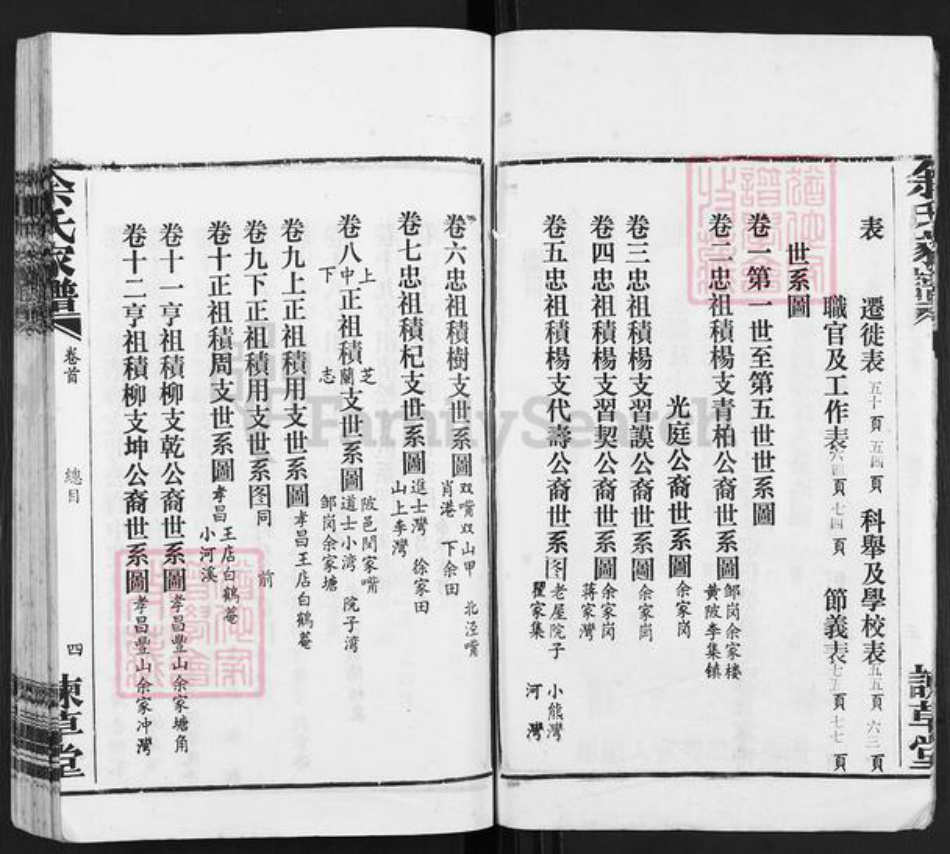 表　遷徙表五十頁五四頁　科舉及學校表五五頁六三頁
職官及工作表六四頁七四頁　節義表七五頁七七頁
世系圖
卷一第一世至第五世世系圖
卷二忠祖積楊支青柏公裔世系圖邹岗余家楼黄陂李集镇
光庭公裔世系圖余家岗
卷三忠祖積楊支習謨公裔世系圖余家岗
卷四忠祖積楊支習契公裔世系圖余家岗蒋家灣
卷五忠祖積楊支代壽公裔世系图老屋院子　小熊灣翟家集　河灣
卷六忠祖積樹支世系圖双嘴双山甲　北泾嘴肖港　下余田
卷七忠祖積杞支世系圖進士灣　徐家田山上李灣
卷八上中下正祖積芝蘭志支世系圖陂邑閆家嘴道士小湾　院子湾邹岗余家塘
卷九上正祖積用支世系圖孝昌王店白鶴菴
卷九下正祖積用支世系图同前
卷十正祖積周支世系圖孝昌王店白鶴菴小河溪
卷十一亨祖積柳支乾公裔世系圖孝昌豐山余家塘角
卷十二亨祖積柳支坤公裔世系圖孝昌豐山余家冲灣
余氏家譜
卷首
總目
四
諫草堂
FamilySearch